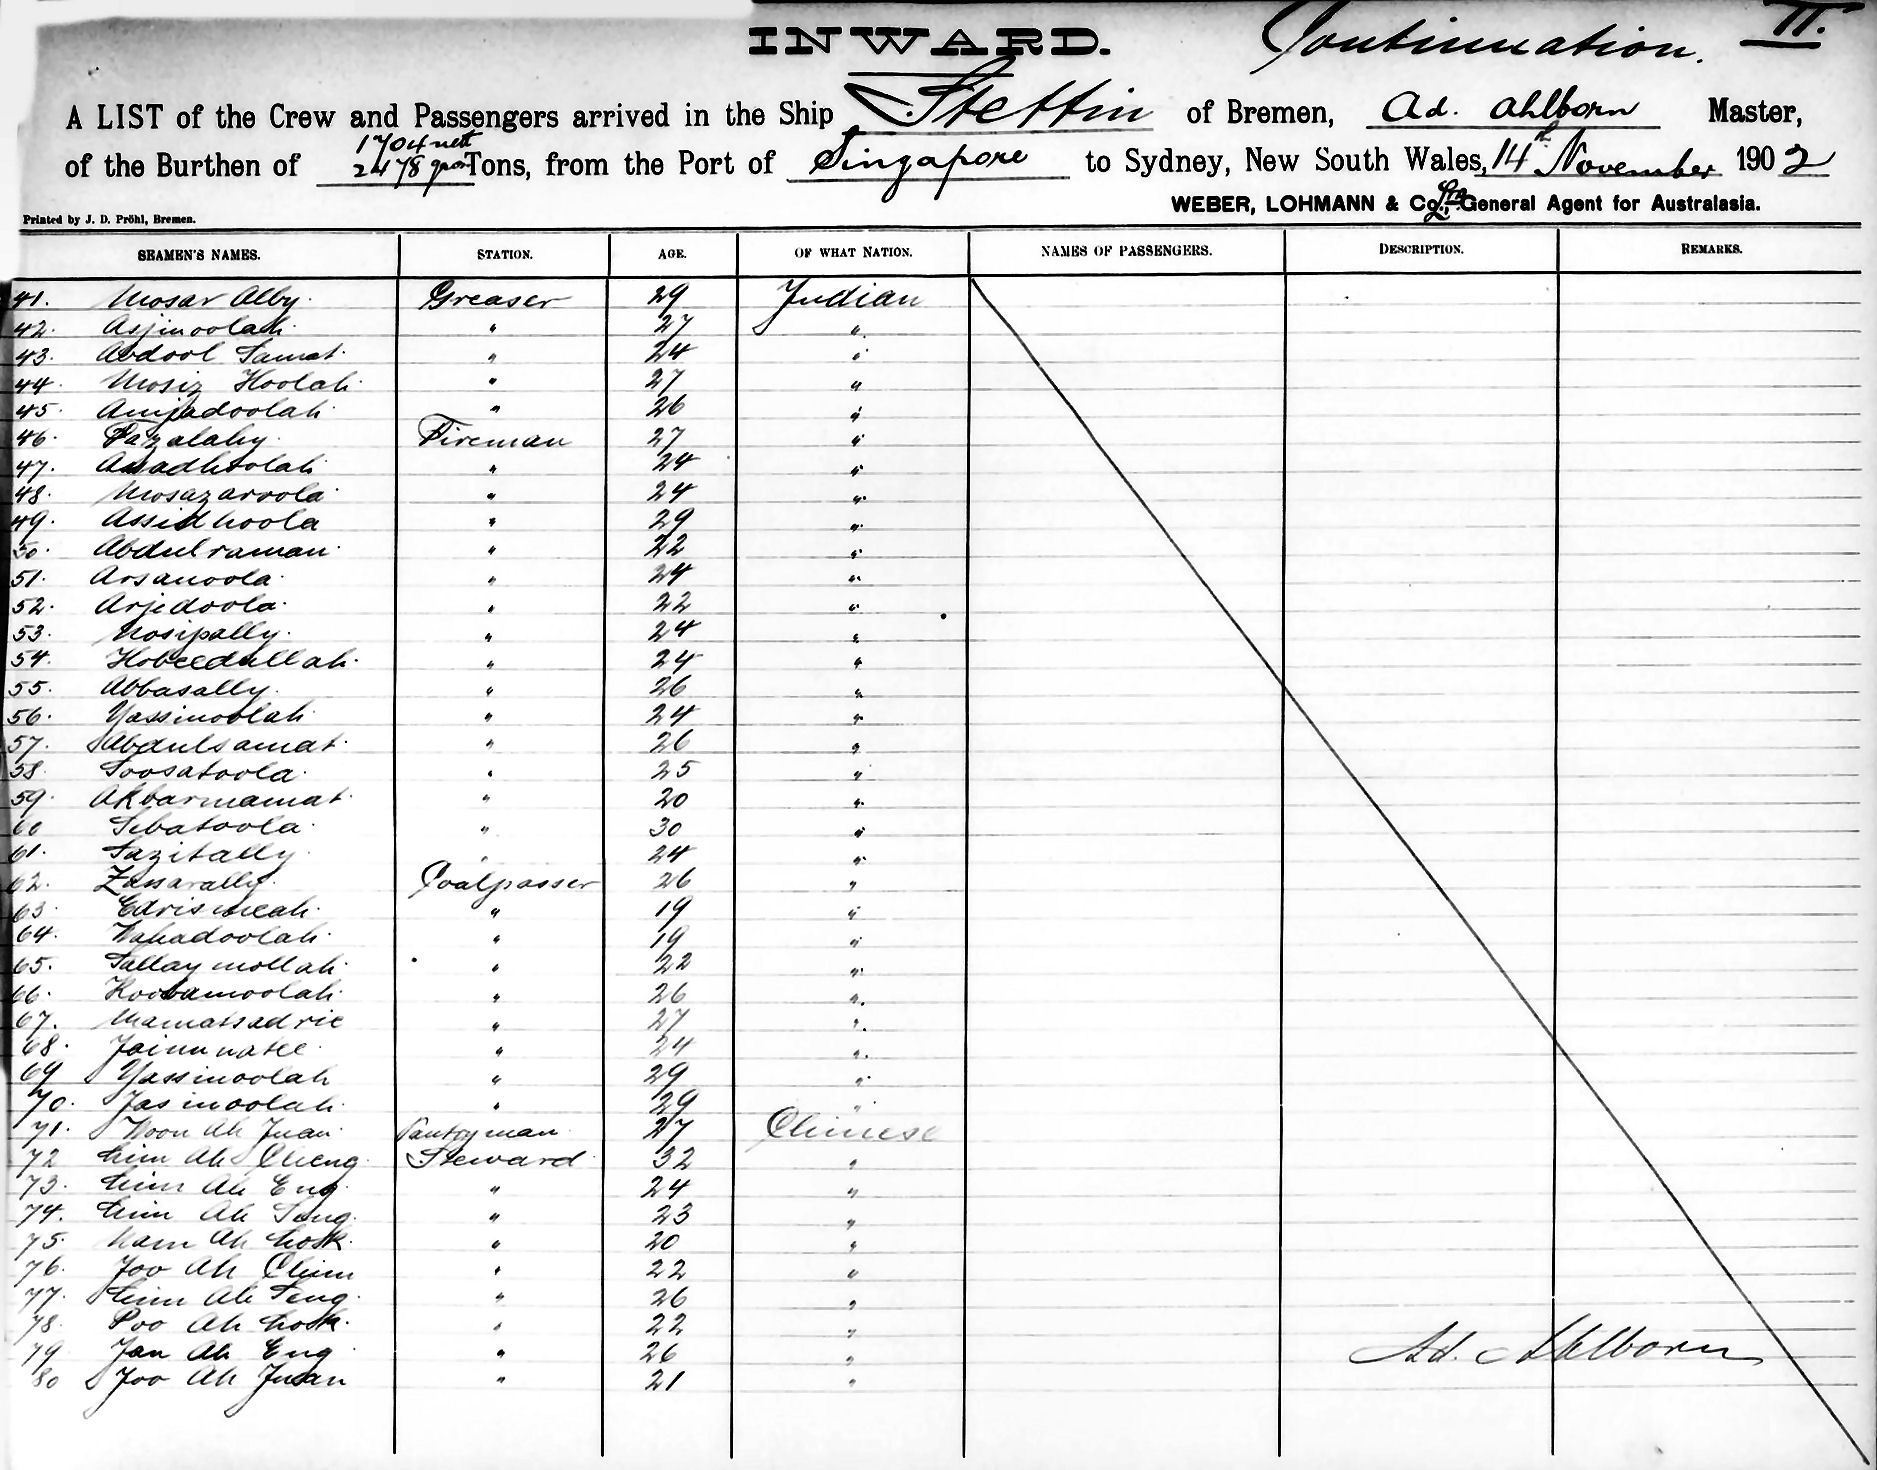 INWARD. Continuation. II.
A LIST of the Crew and Passengers arrived in the Ship Stettin of Bremen, Ad. Ahlborn Master,
1704 nett
of the Burthen of 2478 gross Tons, from the Port of Singapore to Sydney, New South Wales, 14th November 1902
WEBER, LOHMANN & Co., Ltd. General Agent for Australasia.
Printed by J. D. Pröhl, Bremen.
SEAMEN'S NAMES. STATION. AGE. OF WHAT NATION. NAMES OF PASSENGERS. DESCRIPTION. REMARKS.
41. Mosar Alby. Greaser 29 Indian
42. Asjmoolah. " 27 "
43. Abdool Samat. " 24 "
44. Mosiz Hoolah. " 27 "
45. Amjadoolah. " 26 "
46. Fazalahy. Fireman 27 "
47. Asadhoolah " 24 "
48. Mosazaroola. " 24 "
49. Assidhoola " 29 "
50. Abdulraman. " 22 "
51. Arsanoola. " 24 "
52. Arjedoola. " 22 "
53. Nosipally. " 24 "
54. Hobeedullah. " 24 "
55. Abbasally. " 26 "
56. Yassinoolah. " 24 "
57. Abdulsamat. " 26 "
58. Soosatoola. " 25 "
59. Akbarmamat. " 20 "
60 Sebatoola. " 30 "
61. Sazitally. " 24 "
62. Zassarally. Coalpasser 26 "
63. Edrismeah. " 19 "
64. Wahadoolah. " 19 "
65. Sallaymollah. " 22 "
66. Koobamoolah. " 26 "
67. Mamatsadrie " 27 "
68. " 24 "
69 Yassinoolah " 29 "
70. Jasinoolah. " 29 "
71. Woon Ah Juan. Pantryman 27 Chinese
72 Lim Ah Cheng. Steward 32 "
73. Lim Ah Eng. " 24 "
74. Lim Ah Seng. " 23 "
75. Nam Ah Lock. " 20 "
76. Foo Ah Chim " 22 "
77. Lim Ah Teng. " 26 "
78. Poo Ah Lock. " 22 "
79. Jan Ah Eng. " 26 "
Ad. Ahlborn
80 Joo Ah Juan " 21 "